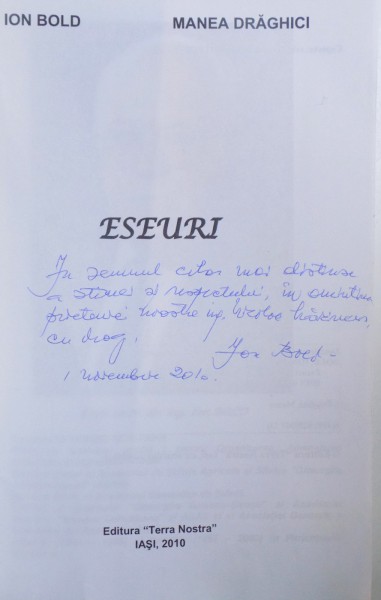 ION BOLD MANEA DRĂGHICI
ESEURI
În semnul celor mai distinse
a stimei și respectului, în amintirea
prieteniei noastre ing.
cu drag,
Ion Bold
1 noiembrie 2010.
Editura "Terra Nostra"
IAŞI, 2010